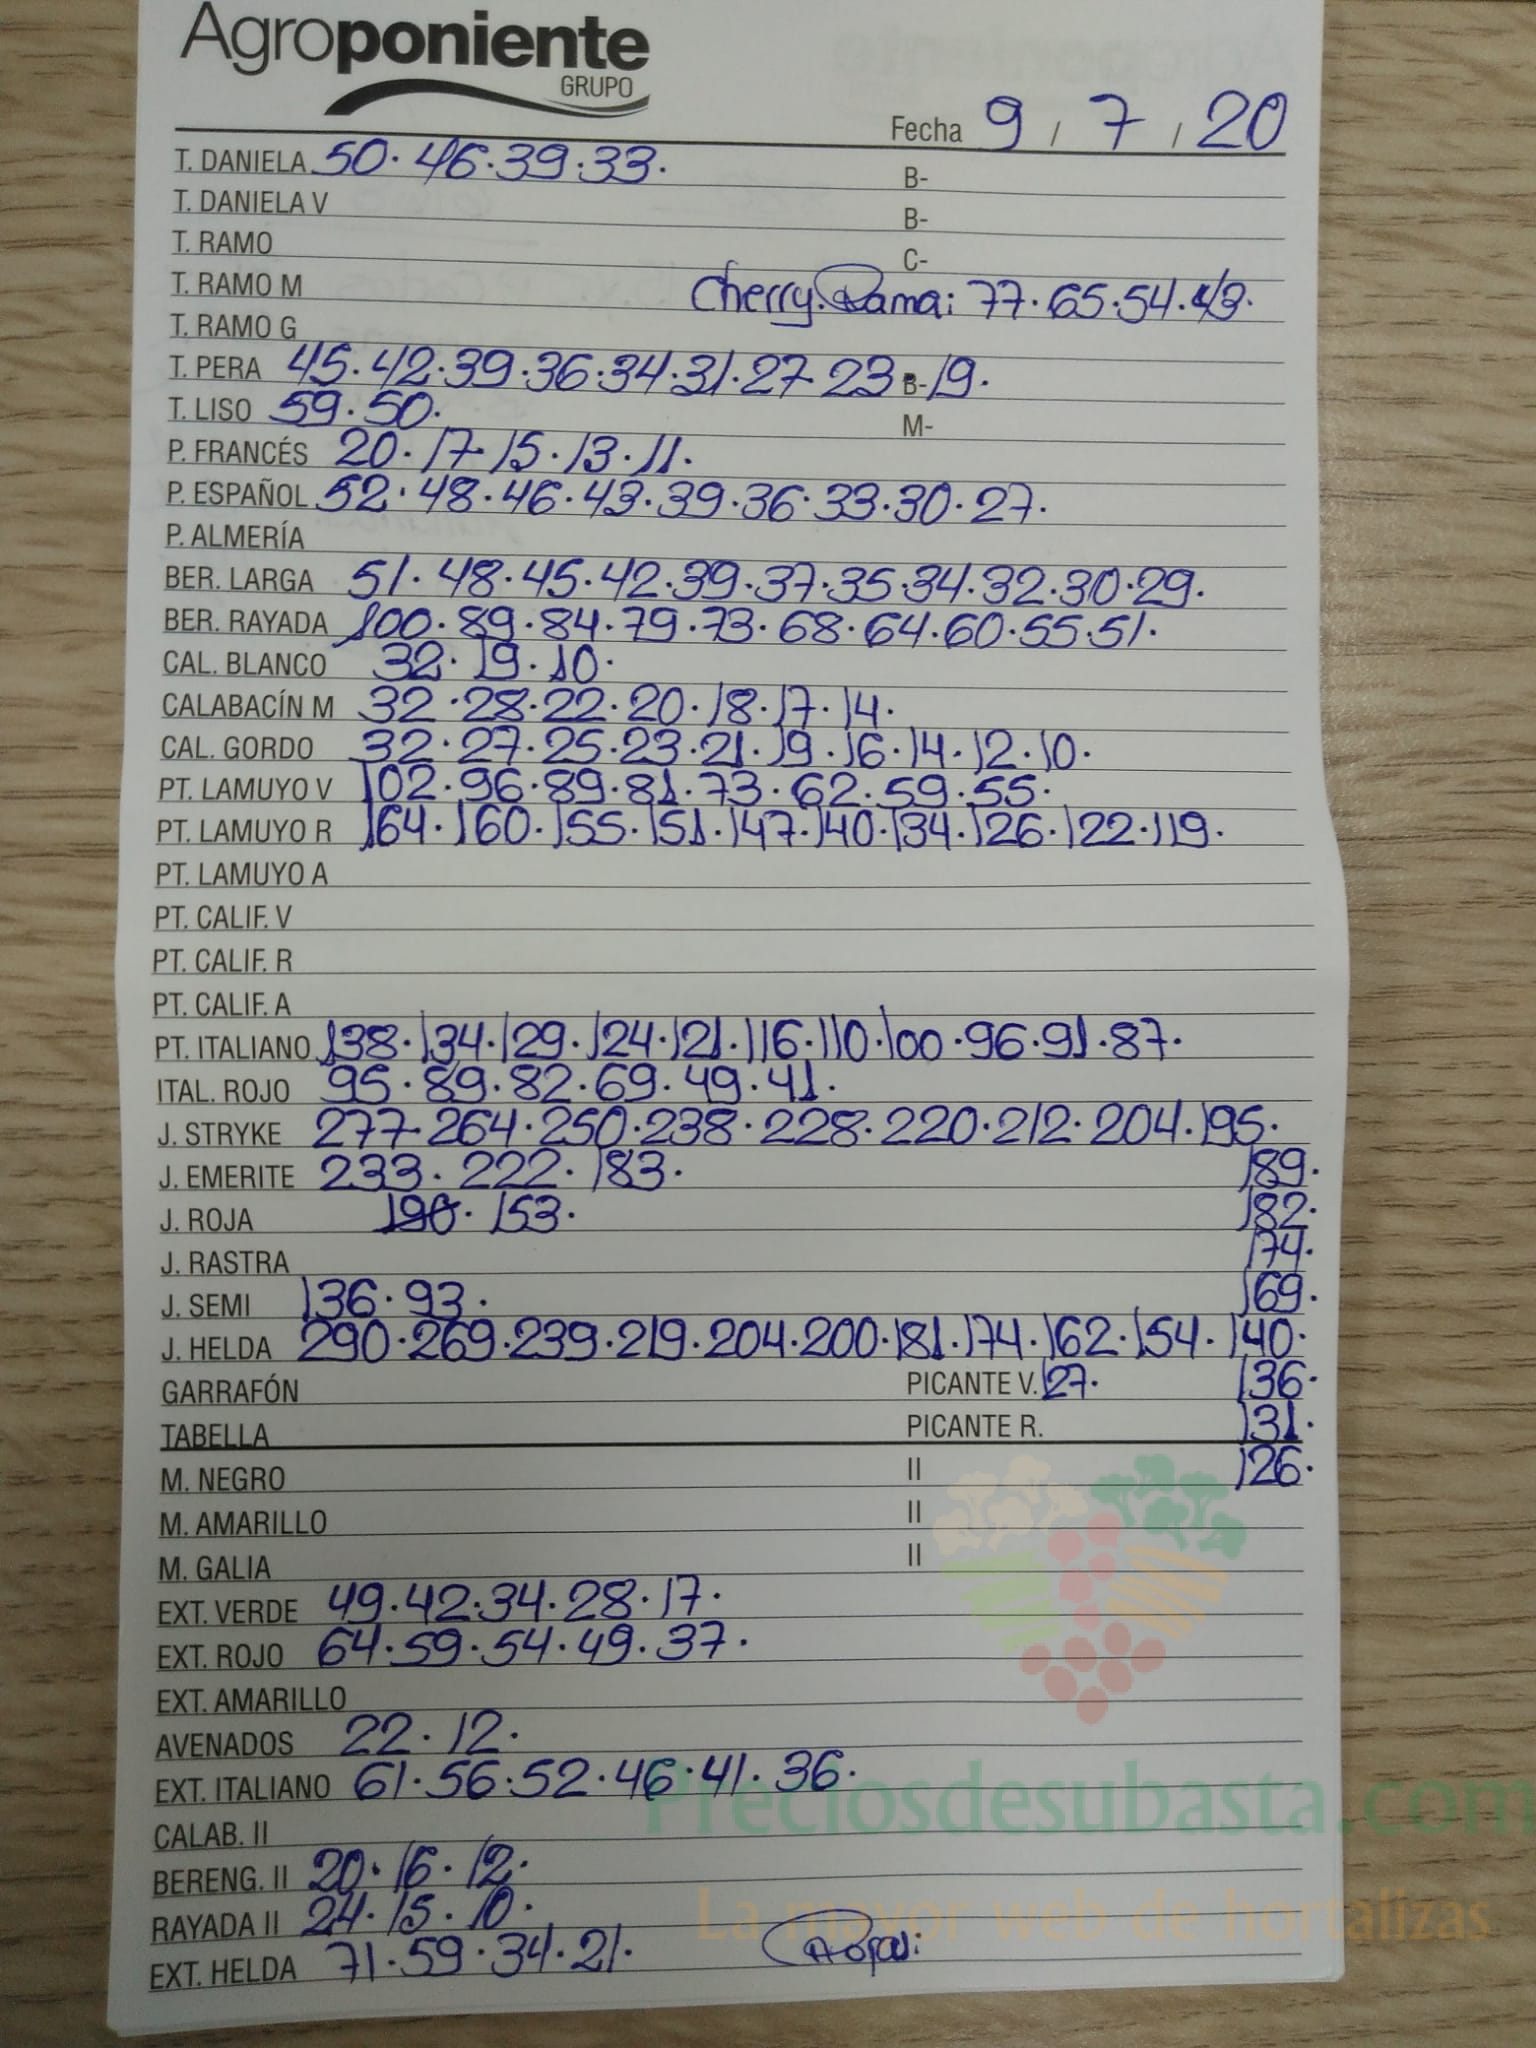 Agroponiente
GRUPO
Fecha 9 / 7 / 20
T. DANIELA 50. 46. 39. 33. B-
T. DANIELA V B-
T. RAMO C-
T. RAMO M Cherry. Rama: 77. 65. 54. 43.
T. RAMO G
T. PERA 45. 42. 39. 36. 34. 31. 27. 23. B- 19.
T. LISO 59. 50. M-
P. FRANCÉS 20. 17. 15. 13. 11.
P. ESPAÑOL 52. 48. 46. 43. 39. 36. 33. 30. 27.
P. ALMERÍA
BER. LARGA 51. 48. 45. 42. 39. 37. 35. 34. 32. 30. 29.
BER. RAYADA 100. 89. 84. 79. 73. 68. 64. 60. 55. 51.
CAL. BLANCO 32. 19. 10.
CALABACÍN M 32. 28. 22. 20. 18. 17. 14.
CAL. GORDO 32. 27. 25. 23. 21. 19. 16. 14. 12. 10.
PT. LAMUYO V 102. 96. 89. 81. 73. 62. 59. 55.
PT. LAMUYO R 164. 160. 155. 151. 147. 140. 134. 126. 122. 119.
PT. LAMUYO A
PT. CALIF. V
PT. CALIF. R
PT. CALIF. A
PT. ITALIANO 138. 134. 129. 124. 121. 116. 110. 100. 96. 91. 87.
ITAL. ROJO 95. 89. 82. 69. 49. 41.
J. STRYKE 277. 264. 250. 238. 228. 220. 212. 204. 195.
J. EMERITE 233. 222. 183. 189.
J. ROJA 190. 153. 182.
J. RASTRA 174.
J. SEMI 136. 93. 169.
J. HELDA 290. 269. 239. 219. 204. 200. 181. 174. 162. 154. 140.
GARRAFÓN PICANTE V. 127. 136.
TABELLA PICANTE R. 131.
M. NEGRO II 126.
M. AMARILLO II
M. GALIA II
EXT. VERDE 49. 42. 34. 28. 17.
EXT. ROJO 64. 59. 54. 49. 37.
EXT. AMARILLO
AVENADOS 22. 12.
EXT. ITALIANO 61. 56. 52. 46. 41. 36.
Preciosdesubasta.com
CALAB. II
BERENG. II 20. 16. 12.
RAYADA II 24. 15. 10.
La mayor web de hortalizas
EXT. HELDA 71. 59. 34. 21.